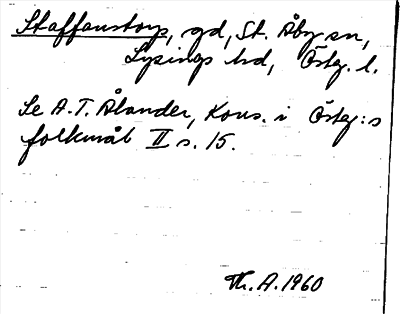 Staffanstorp, gd, St. Åby sn,
Lysings hd, Östg. l.
Se A. T. Ålander, Kons. i Östg:s
folkmål II s. 15.
Th. A. 1960